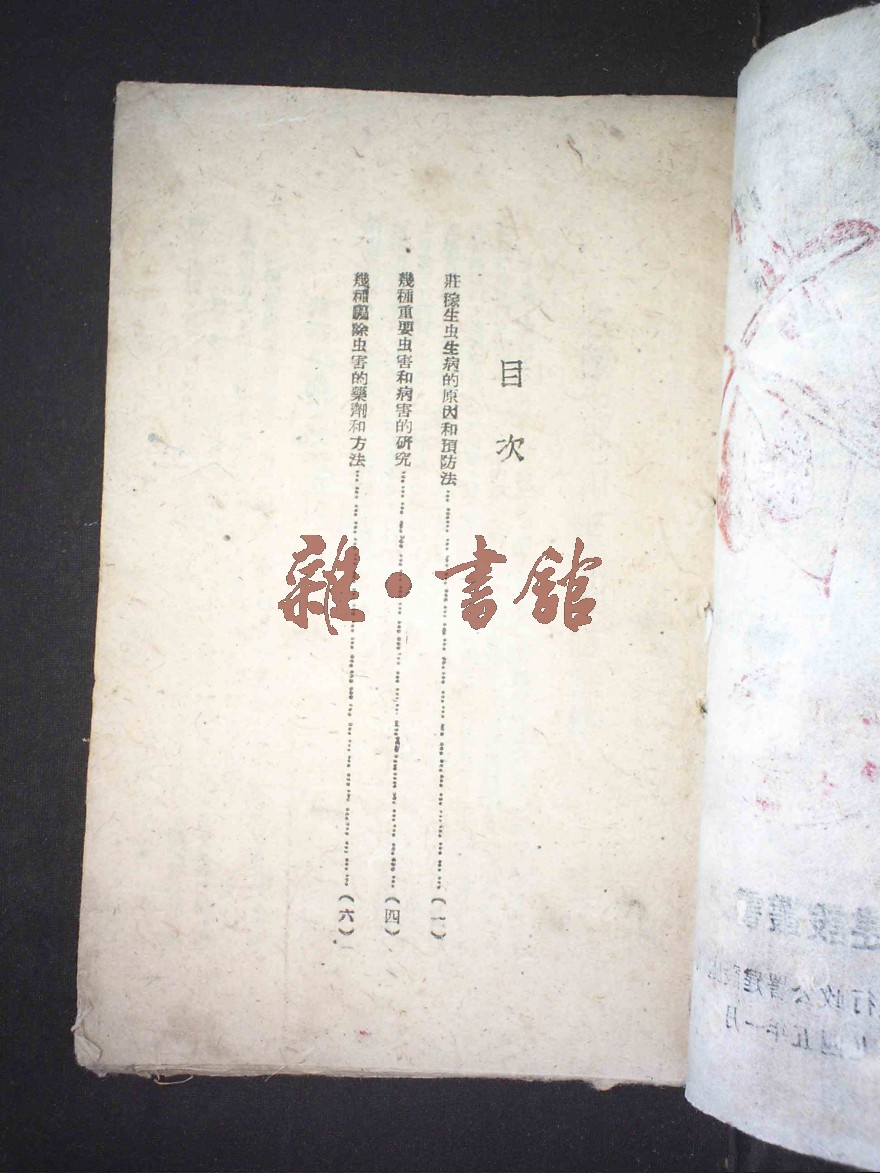 目次
莊稼生虫生病的原因和預防法……(一)
幾種重要虫害和病害的研究……(四)
幾種驅除虫害的藥劑和方法……(六)
雜·書館
建設叢書
行政公署建設
四五年一月